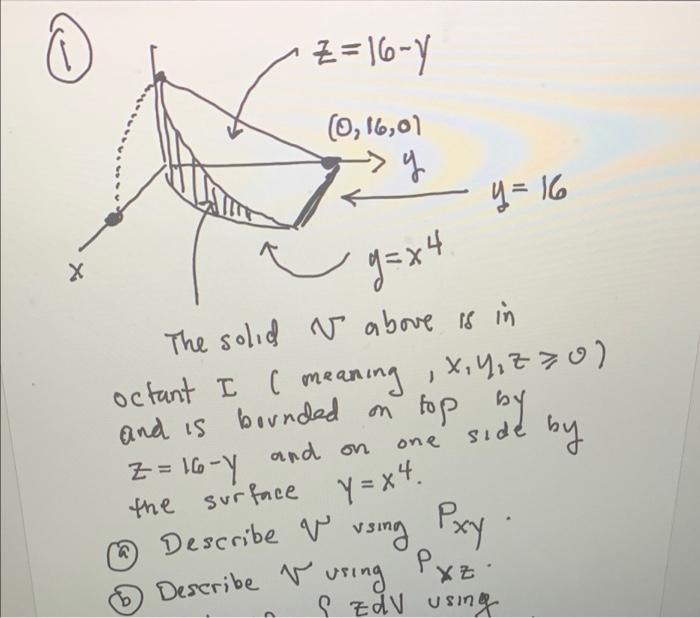 ①
z = 16-y
(0, 16, 0)
y
y = 16
y = x⁴
x
The solid V above is in
octant I ( meaning , x, y, z ≥ 0)
and is bounded on top by
z = 16-y and on one side by
the surface y = x⁴.
ⓐ Describe V using Pxy .
ⓑ Describe V using Pxz .
∫ zdV using